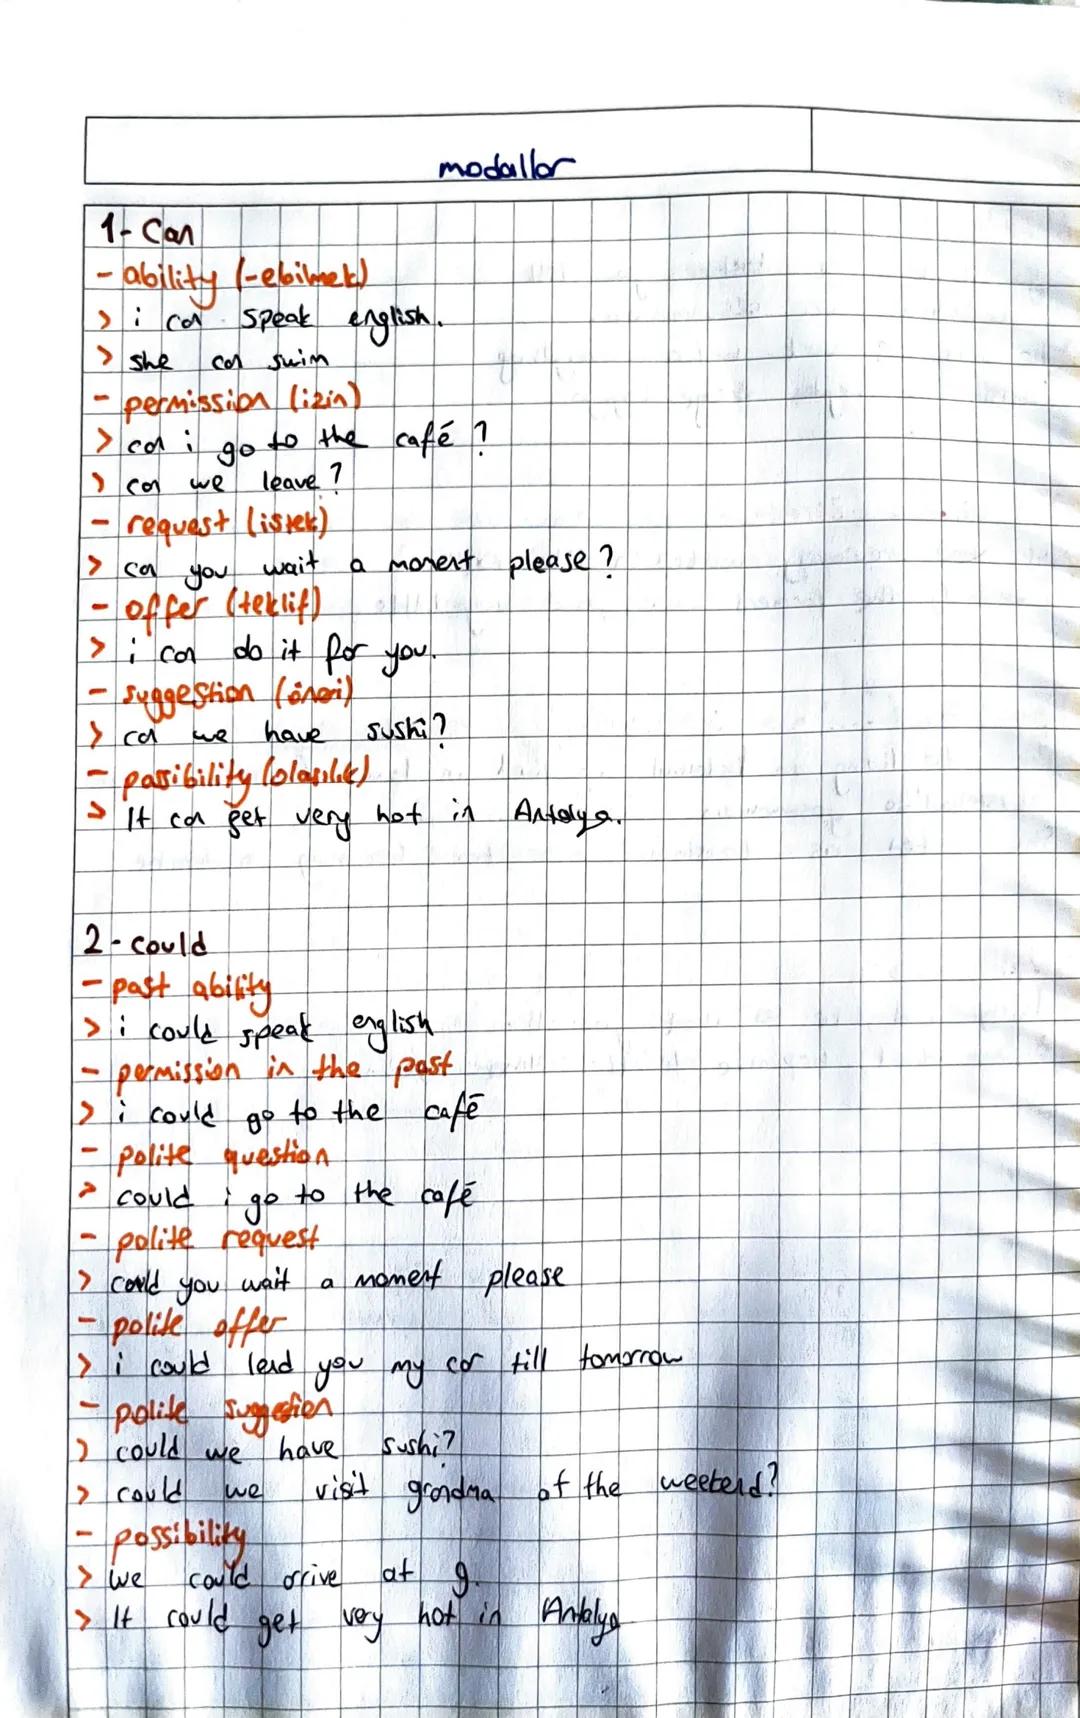 modallar
1- Can
- ability (-ebilmek)
> i can speak english.
> she can swim
- permission (izin)
> can i go to the café ?
> can we leave ?
- request (istek)
> can you wait a moment please ?
- offer (teklif)
> i can do it for you.
- suggestion (öneri)
> can we have sushi ?
- possibility (olasılık)
> It can get very hot in Antalya.
2- could
- past ability
> i could speak english
- permission in the past
> i could go to the café
- polite question
> could i go to the café
- polite request
> could you wait a moment please
- polite offer
> i could lend you my car till tomorrow
- polite suggestion
> could we have sushi?
> could we visit grandma at the weekend?
- possibility
> we could arrive at 9.
> It could get very hot in Antalya